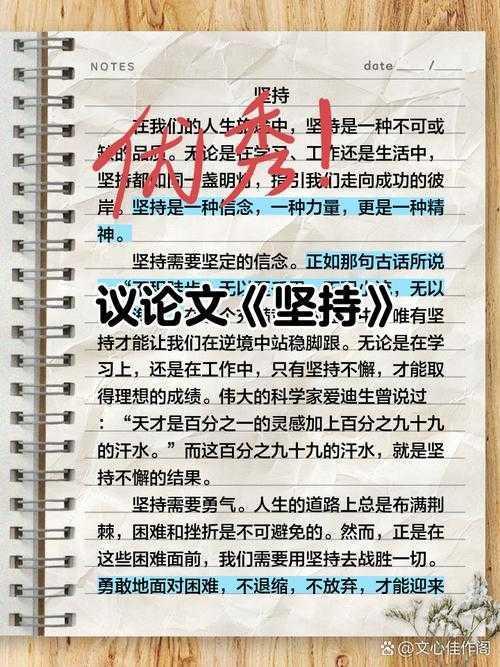 NOTES date ___ / ___
坚持
在我们的人生旅途中，坚持是一种不可或
缺的品质。无论是在学习、工作还是生活中，
坚持都如同一盏明灯，指引我们走向成功的彼
岸。坚持是一种信念，一种力量，更是一种精
神。
优秀！
坚持需要坚定的信念。正如那句古话所说
，无以
议论文《坚持》
唯有坚
持才能让我们在逆境中站稳脚跟。无论是在学
习上，还是在工作中，只有坚持不懈，才能取
得理想的成绩。伟大的科学家爱迪生曾说过
：“天才是百分之一的灵感加上百分之九十九
的汗水。”而这百分之九十九的汗水，就是坚
持不懈的结果。
坚持需要勇气。人生的道路上总是布满荆
棘，困难和挫折是不可避免的。然而，正是在
这些困难面前，我们需要用坚持去战胜一切。
勇敢地面对困难，不退缩，不放弃，才能迎来
@文心佳作阁